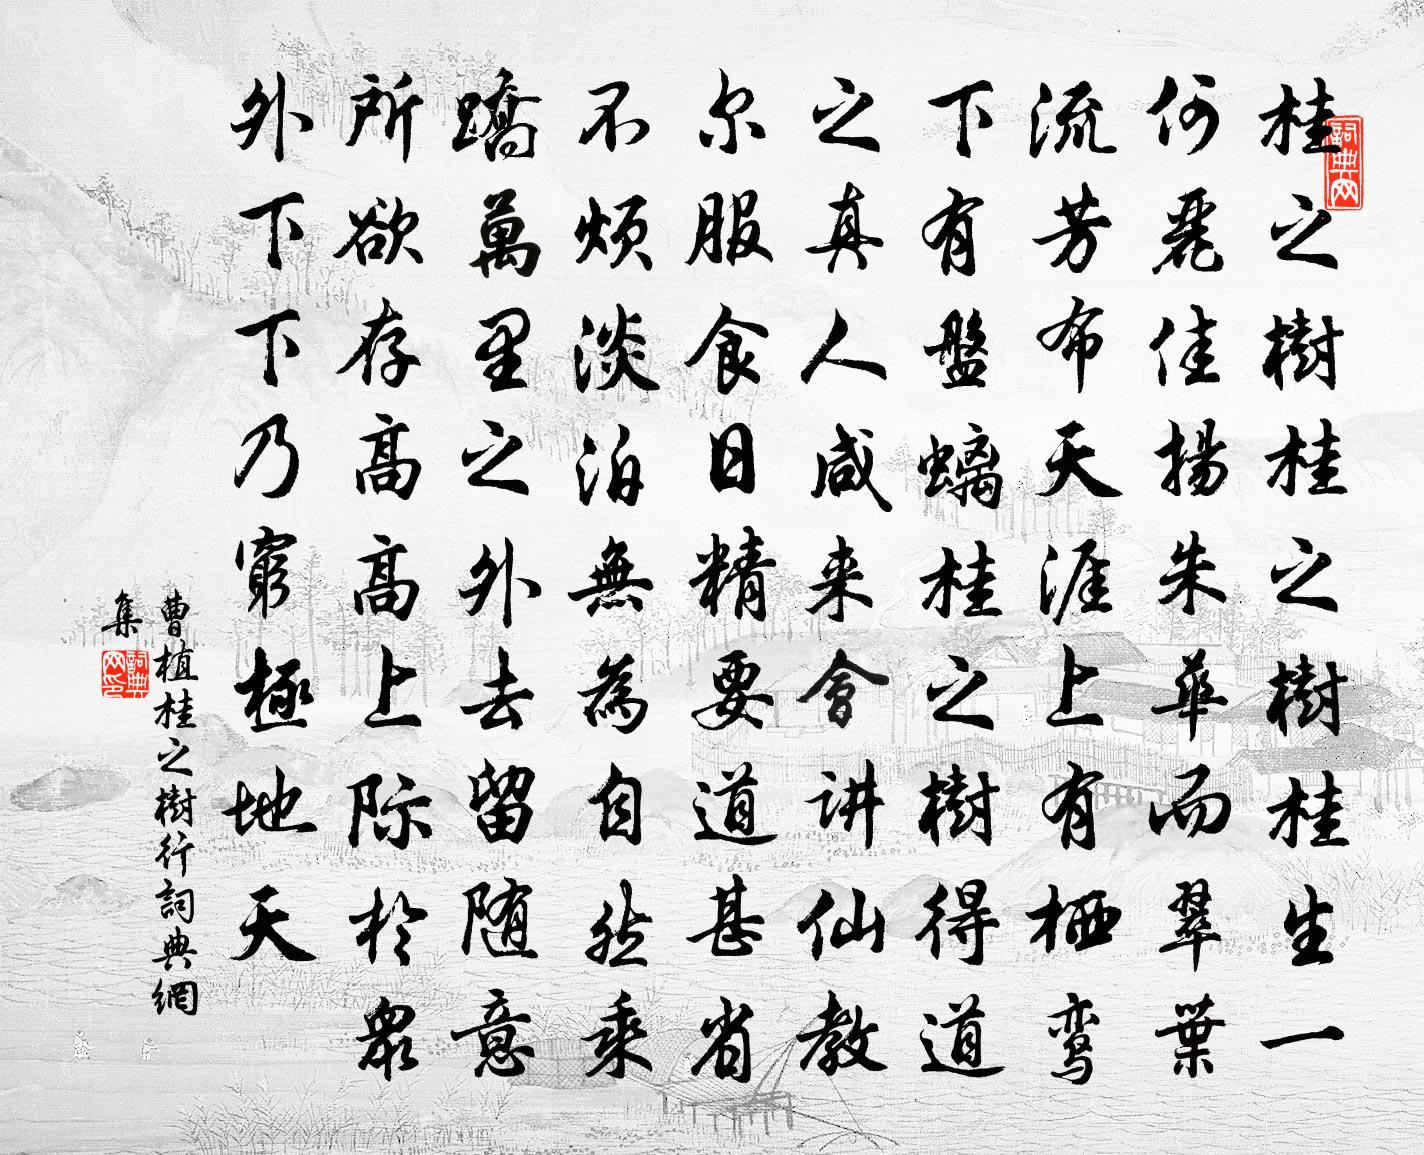 桂之樹桂之樹桂生一
何麗佳揚朱華而翠葉
流芳布天涯上有栖鸾
下有盤螭桂之樹得道
之真人咸来會讲仙教
尔服食日精要道甚省
不烦淡泊無為自然乘
蹻萬里之外去留随意
所欲存高高上际於眾
外下下乃窮極地天
曹植桂之樹行詞典網
集
詞典网
詞典网印